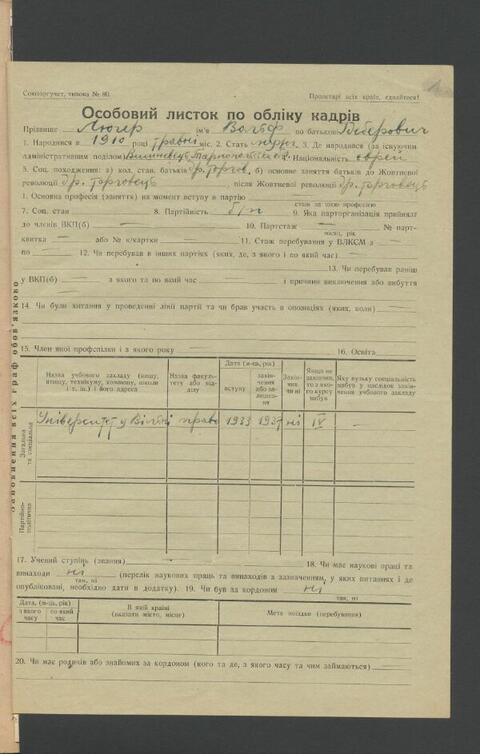 Союзоргучет, типова № 80.
Пролетарі всіх країн, єднайтеся!
Особовий листок по обліку кадрів
Прізвище Люгер ім'я Вольф по батькові
1. Народився в 1910 році травні міс. 2. Стать 3. Де народився (за існуючим
адміністративним поділом) Вишнівець 4. Національність єврей
5. Соц. походження: а) кол. стан батьків др. торгов. б) основне заняття батьків до Жовтневої
революції др. торговець після Жовтневої революції др. торговець
6. Основна професія (заняття) на момент вступу в партію
стаж за цією професією
7. Соц. стан — 8. Партійність б/п 9. Яка парторганізація прийняла
до членів ВКП(б) — 10. Партстаж — № парт-
місяць, рік
квитка — або № к/картки — 11. Стаж перебування у ВЛКСМ з —
по — 12. Чи перебував в інших партіях (яких, де, з якого і по який час) —
13. Чи перебував раніш
у ВКП(б) з якого та по який час і причини виключення або вибуття
14. Чи були хитання у проведенні лінії партії та чи брав участь в опозиціях (яких, коли)
15. Член якої профспілки і з якого року 16. Освіта
Заповнення всіх граф обов'язково
Назва учбового закладу (вищу, втишу, технікуму, комвишу, школи і т. ін.) і його адреса
Назва факультету або відділу
Дата (м-ць, рік)
вступу
закінчення або залишення
Закінчив чи ні
Якщо не закінчив, то з якого курсу вибув
Яку вузьку спеціальність набув у наслідок закінчення учбового закладу
Загальна та спеціальна
Університет у Вільні право 1933 1937 ні IV —
Партійно-політична
17. Учений ступінь (звання) 18. Чи має наукові праці та
винаходи ні (перелік наукових праць та винаходів з зазначенням, у яких питаннях і де
так, ні
опубліковані, необхідно дати в додатку). 19. Чи був за кордоном ні
так, ні
Дата, (м-ць, рік)
з якого часу
по який час
В якій країні
(вказати місто, місця)
Мета поїздки (перебування)
20. Чи має родичів або знайомих за кордоном (кого та де, з якого часу та чим займаються)